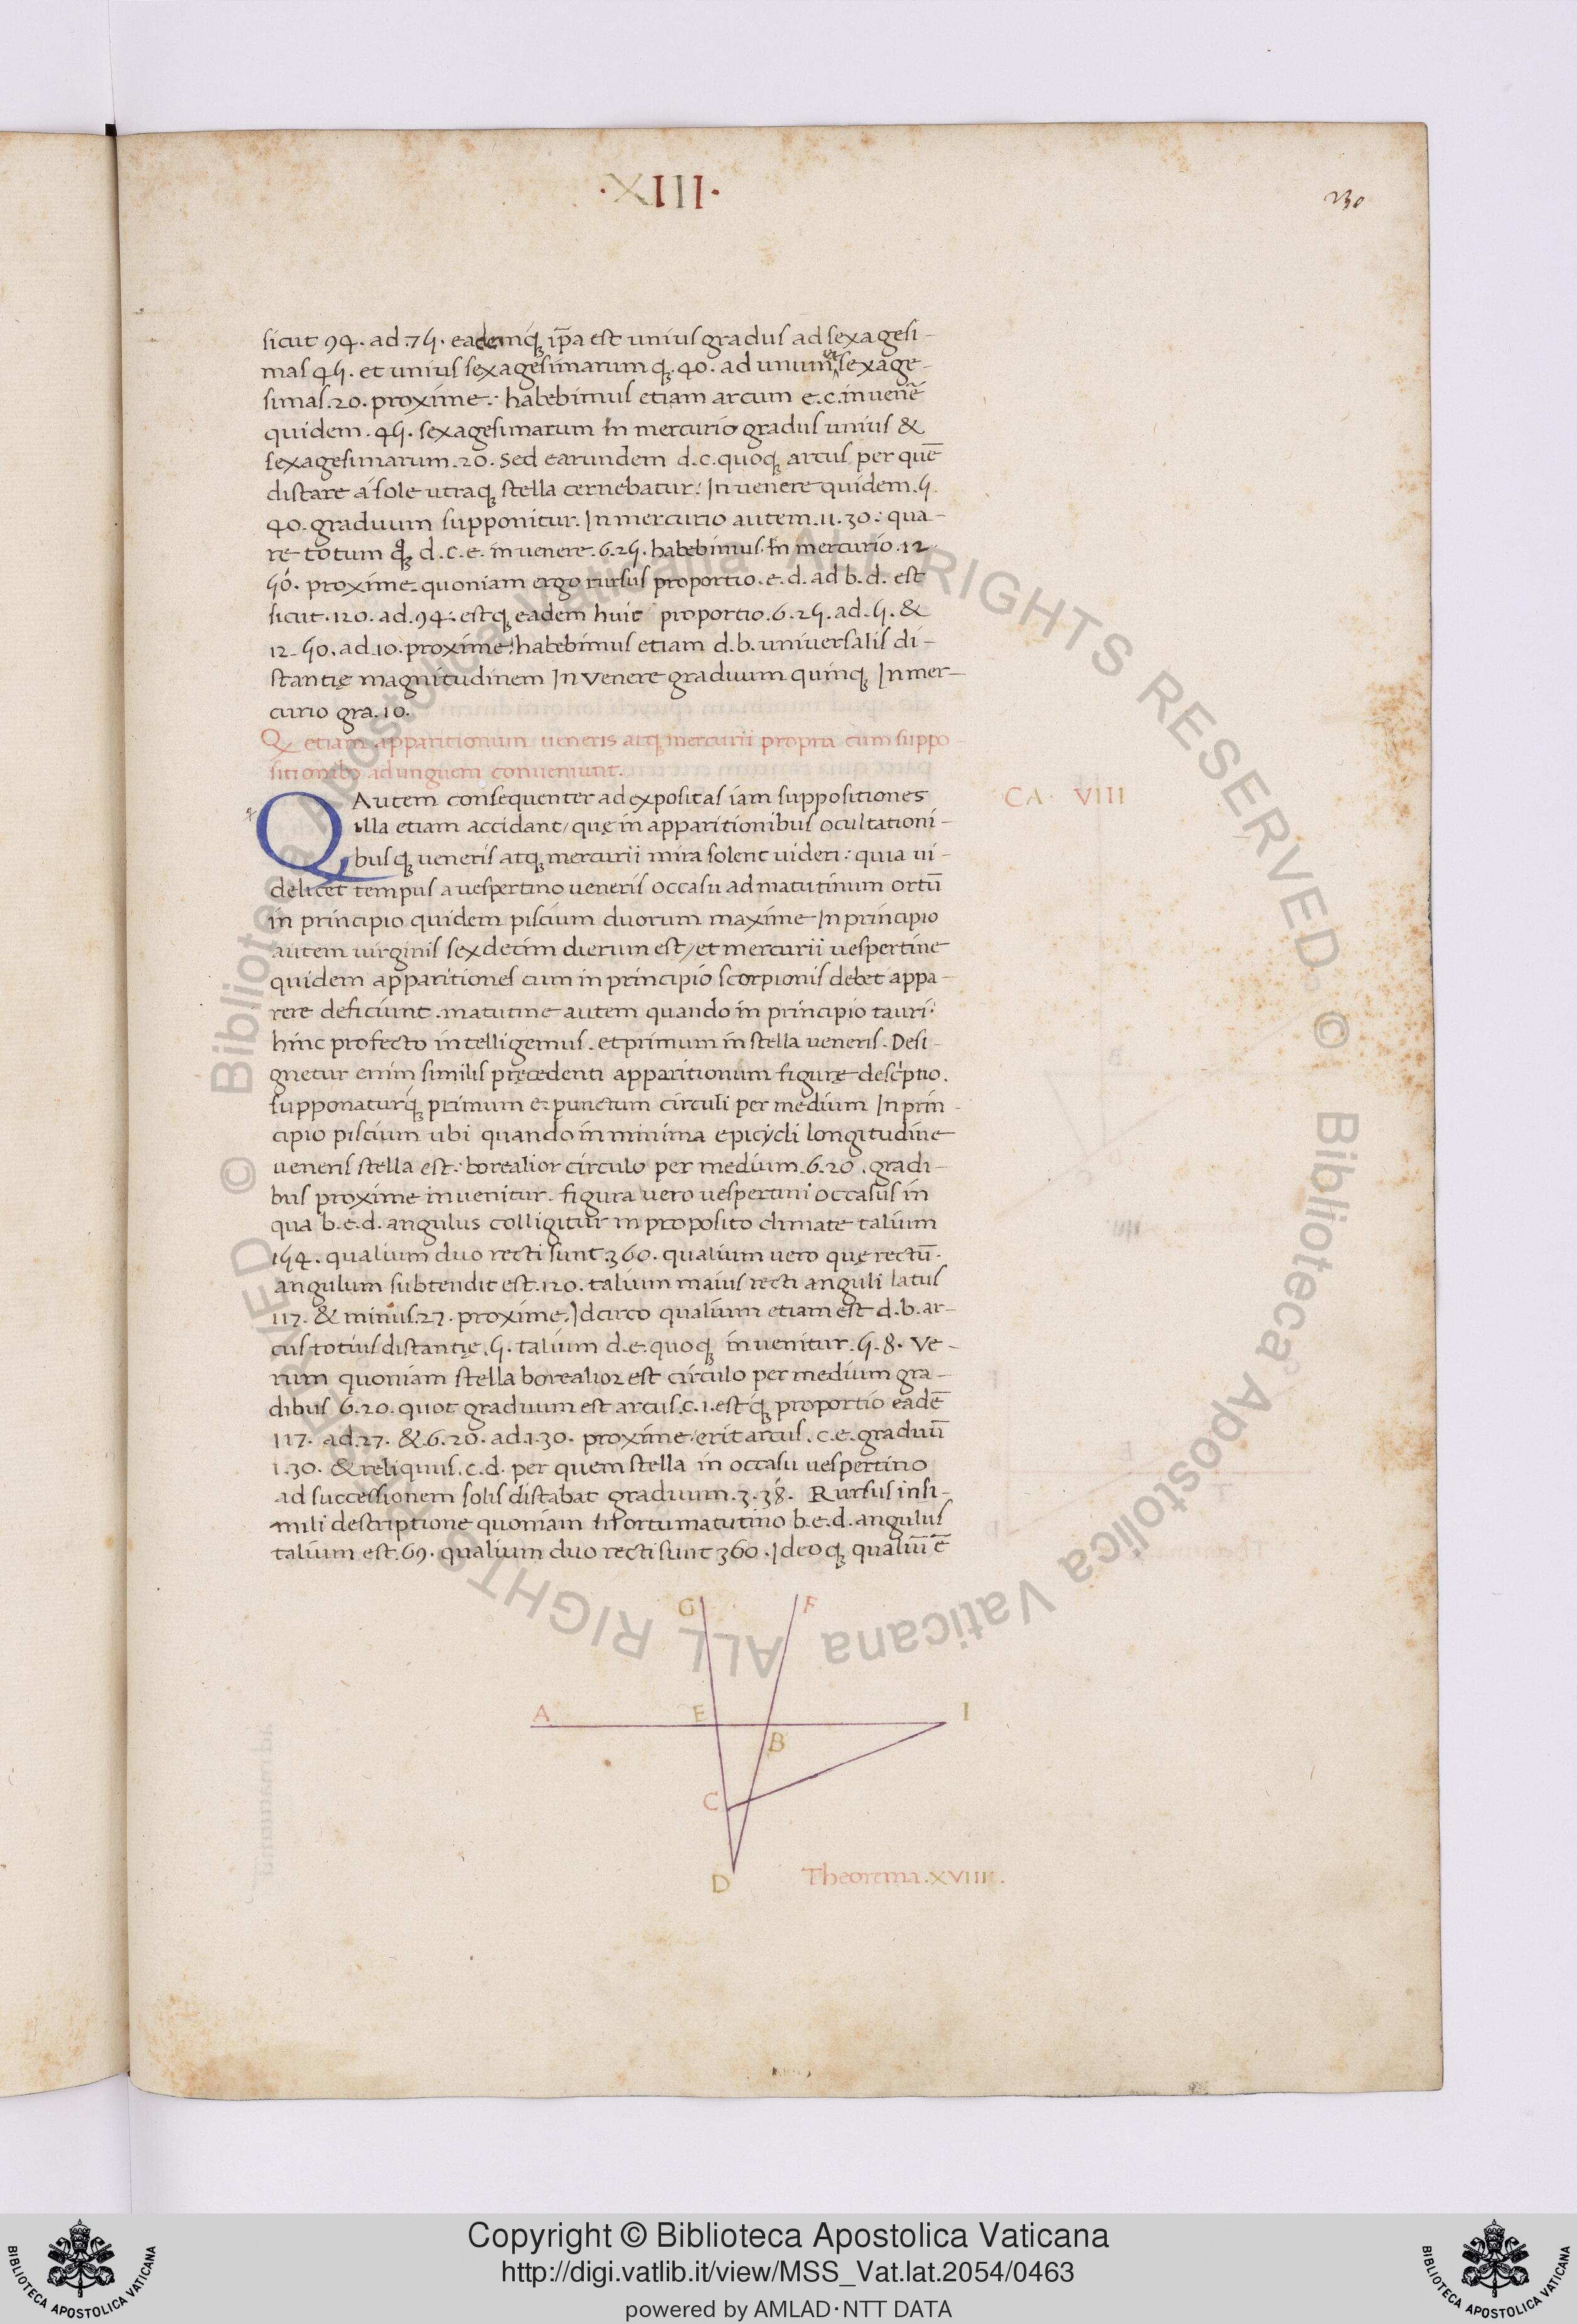 ·XIII·
230
sicut 94. ad .75. eademq́ꝫ ip̄a est unius gradus ad sexagesi-
mas 45. et unius sexagesimarum qꝫ. 40. ad unum et sexage-
simas .20. proxime: habebimus etiam arcum e.c. in uenē
quidem .45. sexagesimarum In mercurio gradus unius &
sexagesimarum .20. Sed earundem d.c. quoqꝫ arcus per quē
distare á sole utraqꝫ stella cernebatur: In uenere quidem .5.
40. graduum supponitur. In mercurio autem .11.30: qua-
re totum qꝫ d.c.e. in uenere .6.25. habebimus. In mercurio .12.
50. proxime. quoniam ergo rursus proportio .e.d. ad b.d. est
sicut .120. ad .94: estqꝫ eadem huic proportio .6.25. ad .5. &
12.50. ad .10. proxime: habebimus etiam d.b. uniuersalis di-
stantię magnitudinem In venere graduum quinqꝫ In mer-
curio gra. 10.
Q etiam apparitionum ueneris atqꝫ mercurii propria cum suppo
sitionibꝰ ad unguem conueniunt.
CA. VIII
Q Autem consequenter ad expositas iam suppositiones
illa etiam accidant, quę in apparitionibus ocultationi-
busqꝫ ueneris atqꝫ mercurii mira solent uideri: quia ui-
delicet tempus a uespertino ueneris occasu ad matutinum ortū
in principio quidem piscium duorum maxime In principio
autem uirginis sexdecim dierum est, et mercurii uespertine
quidem apparitiones cum in principio scorpionis debet appa-
rere deficiunt. matutine autem quando in principio tauri:
hinc profecto intelligemus. et primum in stella ueneris. Desi-
gnetur enim similis pręcedenti apparitionum figurę descriptio.
supponaturq́ꝫ primum e. punctum circuli per medium In prin-
cipio piscium ubi quando in minima epicycli longitudine
ueneris stella est: borealior circulo per medium .6.20. gradi-
bus proxime inuenitur. figura uero uespertini occasus in
qua b.e.d. angulus colligitur in proposito climate talium
154. qualium duo recti sunt .360. qualium uero quę rectū.
angulum subtendit est .120. talium maius recti anguli latus
117. & minus .27. proxime. Idcirco qualium etiam est d.b. ar-
cus totius distantię .5. talium d.e. quoqꝫ inuenitur .5.8. Ve-
rum quoniam stella borealior est circulo per medium gra-
dibus 6.20. quot graduum est arcus .c.i. estq́ꝫ proportio eadē
117. ad .27. & .6.20. ad .1.30. proxime: erit arcus .c.e. graduū
1.30. & reliquus .c.d. per quem stella in occasu uespertino
ad successionem solis distabat graduum .3.38. Rursus in si-
mili descriptione quoniam In ortu matutino b.e.d. angulus
talium est .69. qualium duo recti sunt 360. Ideoqꝫ qualiū ē
G F
A E I
B
C
D
Theorema .XVIIII.
© Biblioteca Apostolica Vaticana ALL RIGHTS RESERVED
© Biblioteca Apostolica Vaticana ALL RIGHTS RESERVED
Copyright © Biblioteca Apostolica Vaticana
http://digi.vatlib.it/view/MSS_Vat.lat.2054/0463
powered by AMLAD·NTT DATA
BIBLIOTECA APOSTOLICA VATICANA
BIBLIOTECA APOSTOLICA VATICANA